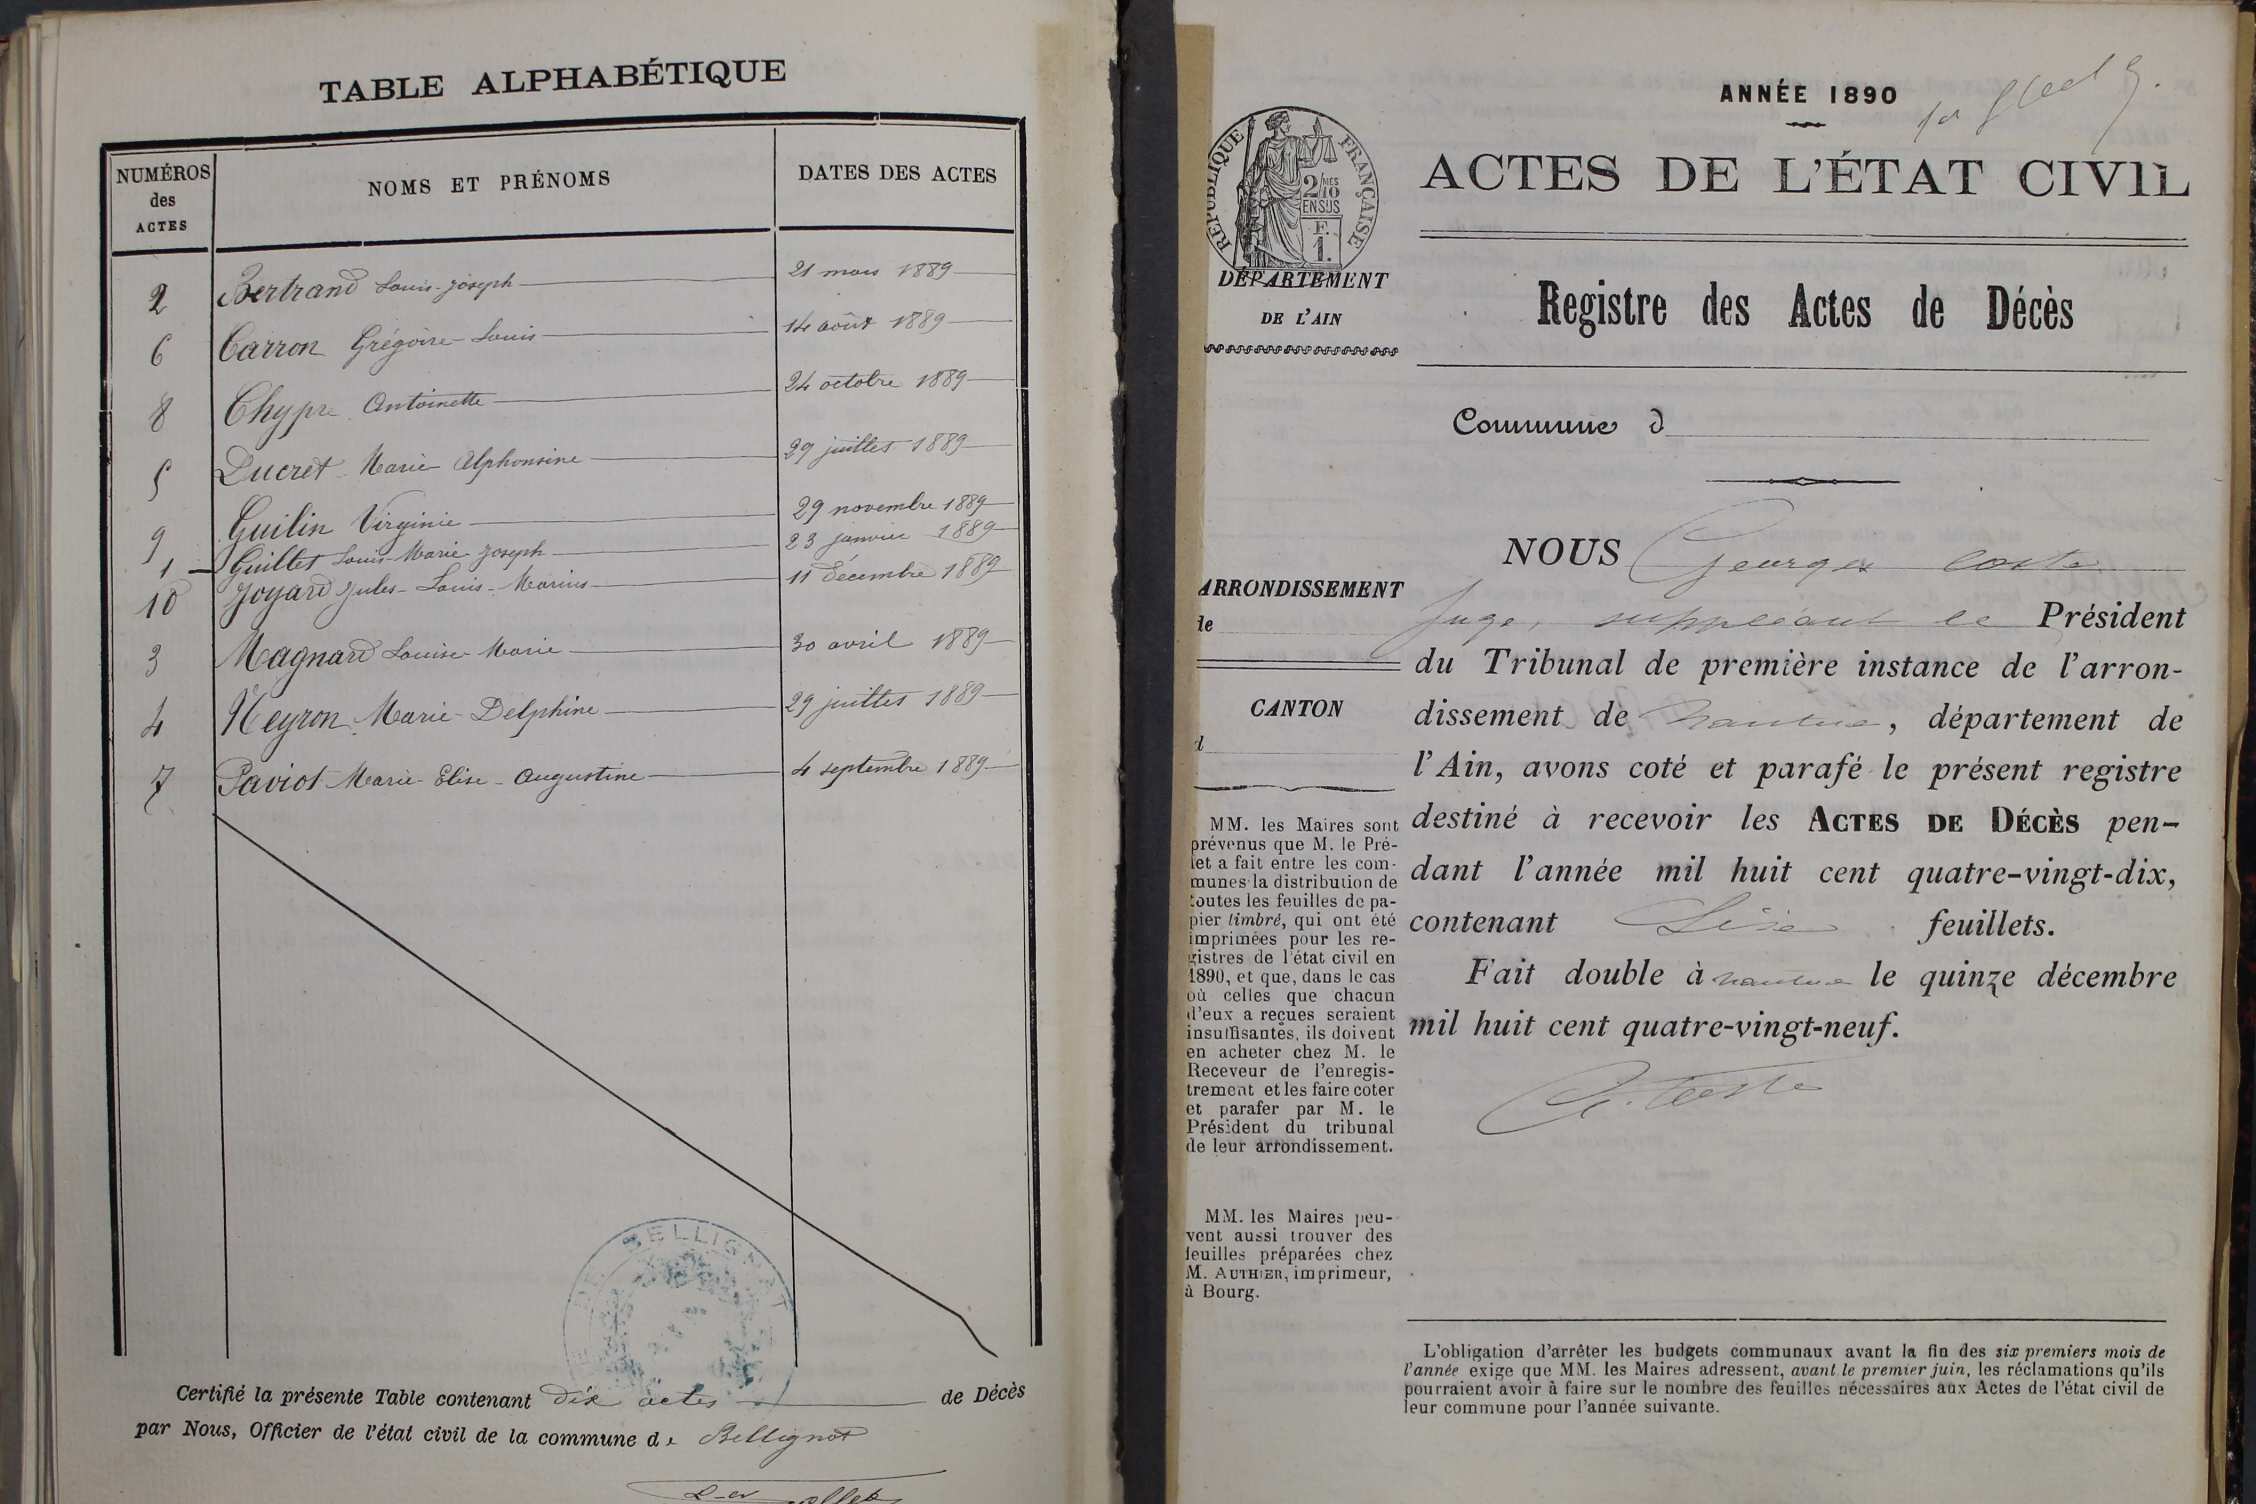 TABLE ALPHABÉTIQUE
NUMÉROS
des
ACTES
NOMS ET PRÉNOMS
DATES DES ACTES
2 Bertrand Louis-Joseph 21 mars 1889
6 Carron Grégoire-Louis 14 août 1889
8 Chypre Antoinette 24 octobre 1889
5 Ducret Marie Alphonsine 29 juillet 1889
9 Guilin Virginie 29 novembre 1889
1 Guillet Louis-Marie Joseph 23 janvier 1889
10 Joyard Jules-Louis-Marius 11 décembre 1889
3 Magnard Louise Marie 30 avril 1889
4 Neyron Marie-Delphine 29 juillet 1889
7 Paviot Marie-Elise-Augustine 4 septembre 1889
BELLIGNAT
Certifié la présente Table contenant dix actes de Décès
par Nous, Officier de l'état civil de la commune de Bellignat
ANNÉE 1890
RÉPUBLIQUE FRANÇAISE
2/10
EN SUS
F.
1.
ACTES DE L'ÉTAT CIVIL
DÉPARTEMENT
DE L'AIN
Registre des Actes de Décès
Commune d
NOUS Georges Coste
Juge, suppléant le Président
du Tribunal de première instance de l'arron-
dissement de Nantua, département de
l'Ain, avons coté et parafé le présent registre
destiné à recevoir les ACTES DE DÉCÈS pen-
dant l'année mil huit cent quatre-vingt-dix,
contenant feuillets.
Fait double à Nantua le quinze décembre
mil huit cent quatre-vingt-neuf.
G. Coste
ARRONDISSEMENT
de
CANTON
d
MM. les Maires sont
prévenus que M. le Pré-
fet a fait entre les com-
munes la distribution de
toutes les feuilles de pa-
pier timbré, qui ont été
imprimées pour les re-
gistres de l'état civil en
1890, et que, dans le cas
où celles que chacun
d'eux a reçues seraient
insuffisantes, ils doivent
en acheter chez M. le
Receveur de l'enregis-
trement et les faire coter
et parafer par M. le
Président du tribunal
de leur arrondissement.
MM. les Maires peu-
vent aussi trouver des
feuilles préparées chez
M. AUTHIER, imprimeur,
à Bourg.
L'obligation d'arrêter les budgets communaux avant la fin des six premiers mois de
l'année exige que MM. les Maires adressent, avant le premier juin, les réclamations qu'ils
pourraient avoir à faire sur le nombre des feuilles nécessaires aux Actes de l'état civil de
leur commune pour l'année suivante.